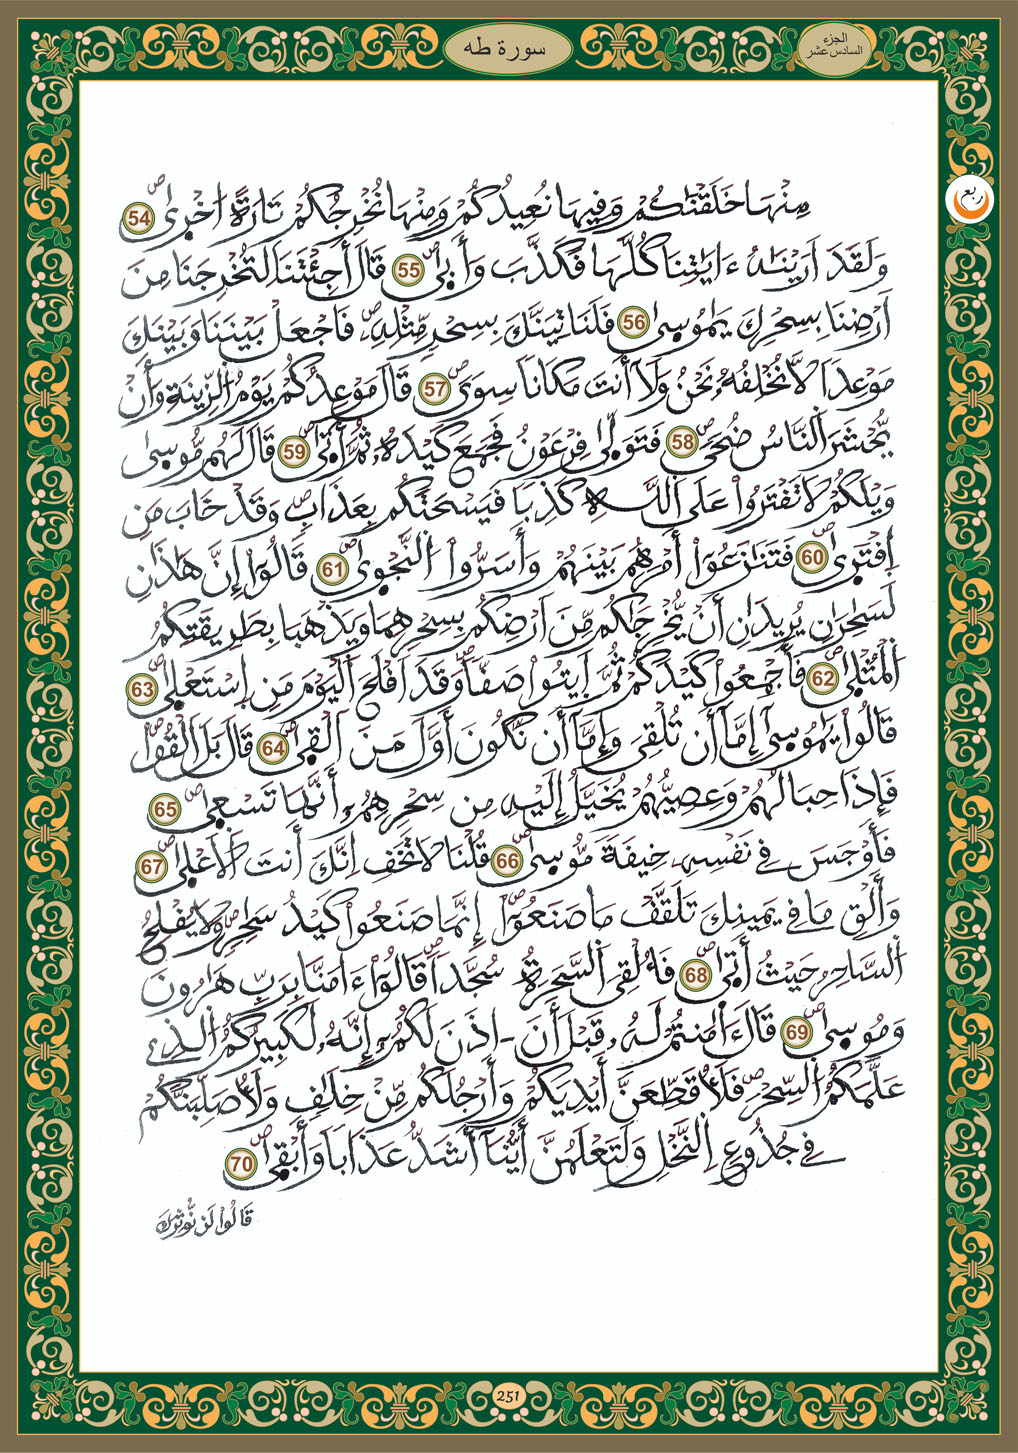 سورة طه
الجزء
السادس عشر
ربع
مِنْهَا خَلَقْنَٰكُمْ وَفِيهَا نُعِيدُكُمْ وَمِنْهَا نُخْرِجُكُمْ تَارَةً اُخْر۪يٰۖ 54
وَلَقَدَ اَرَيْنَٰهُ ءَايَٰتِنَا كُلَّهَا فَكَذَّبَ وَأَب۪يٰۖ 55 قَالَ أَجِئْتَنَا لِتُخْرِجَنَا مِنَ
اَرْضِنَا بِسِحْرِكَ يَٰمُوس۪يٰۖ 56 فَلَنَاتِيَنَّكَ بِسِحْرٖ مِّثْلِهِۦۖ فَاجْعَلْ بَيْنَنَا وَبَيْنَكَ
مَوْعِداٗ لَّا نُخْلِفُهُۥ نَحْنُ وَلَآ أَنتَ مَكَاناٗ سِوٗيۖ 57 قَالَ مَوْعِدُكُمْ يَوْمُ اُ۬لزِّينَةِ وَأَنْ
يُّحْشَرَ اَ۬لنَّاسُ ضُحٗيۖ 58 فَتَوَلّ۪يٰ فِرْعَوْنُ فَجَمَعَ كَيْدَهُۥ ثُمَّ أَت۪يٰۖ 59 قَالَ لَهُم مُّوس۪يٰ
وَيْلَكُمْ لَا تَفْتَرُواْ عَلَي اَ۬للَّهِ كَذِباٗ فَيَسْحَتَكُم بِعَذَابٖۖ وَقَدْ خَابَ مَنِ
اِ۪فْتَر۪يٰۖ 60 فَتَنَٰزَعُوٓاْ أَمْرَهُم بَيْنَهُمْ وَأَسَرُّواْ اُ۬لنَّجْو۪يٰۖ 61 قَالُوٓاْ إِنَّ هَٰذَٰنِ
لَسَٰحِرَٰنِ يُرِيدَٰنِ أَنْ يُّخْرِجَٰكُم مِّنَ اَرْضِكُم بِسِحْرِهِمَا وَيَذْهَبَا بِطَرِيقَتِكُمُ
اُ۬لْمُثْل۪يٰۖ 62 فَأَجْمِعُواْ كَيْدَكُمْ ثُمَّ اَ۪يتُواْ صَفّاٗۖ وَقَدَ اَفْلَحَ اَ۬لْيَوْمَ مَنِ اِ۪سْتَعْل۪يٰۖ 63
قَالُواْ يَٰمُوس۪يٰٓ إِمَّآ أَن تُلْقِيَ وَإِمَّآ أَن نَّكُونَ أَوَّلَ مَنَ اَلْق۪يٰۖ 64 قَالَ بَلَ اَلْقُواْۖ
فَإِذَا حِبَالُهُمْ وَعِصِيُّهُمْ يُخَيَّلُ إِلَيْهِ مِن سِحْرِهِمُۥٓ أَنَّهَا تَسْع۪يٰۖ 65
فَأَوْجَسَ فِے نَفْسِهِۦ خِيفَةٗ مُّوس۪يٰۖ 66 قُلْنَا لَا تَخَفِ اِنَّكَ أَنتَ اَ۬لَاعْل۪يٰۖ 67
وَأَلْقِ مَا فِے يَمِينِكَ تَلَقَّفْ مَا صَنَعُوٓاْۖ إِنَّمَا صَنَعُواْ كَيْدُ سَٰحِرٖۖ وَلَا يُفْلِحُ
اُ۬لسَّاحِرُ حَيْثُ أَت۪يٰۖ 68 فَأُلْقِيَ اَ۬لسَّحَرَةُ سُجَّداٗۖ قَالُوٓاْ ءَامَنَّا بِرَبِّ هَٰرُونَ
وَمُوس۪يٰۖ 69 قَالَ ءَاٰمَنتُمْ لَهُۥ قَبْلَ أَنَ اٰذَنَ لَكُمُۥٓۖ إِنَّهُۥ لَكَبِيرُكُمُ اُ۬لذِے
عَلَّمَكُمُ اُ۬لسِّحْرَۖ فَلَأُقَطِّعَنَّ أَيْدِيَكُمْ وَأَرْجُلَكُم مِّنْ خِلَٰفٖ وَلَأُصَلِّبَنَّكُمْ
فِے جُذُوعِ اِ۬لنَّخْلِ وَلَتَعْلَمُنَّ أَيُّنَآ أَشَدُّ عَذَاباٗ وَأَبْق۪يٰۖ 70
قَالُواْ لَن نُّوثِرَكَ
251